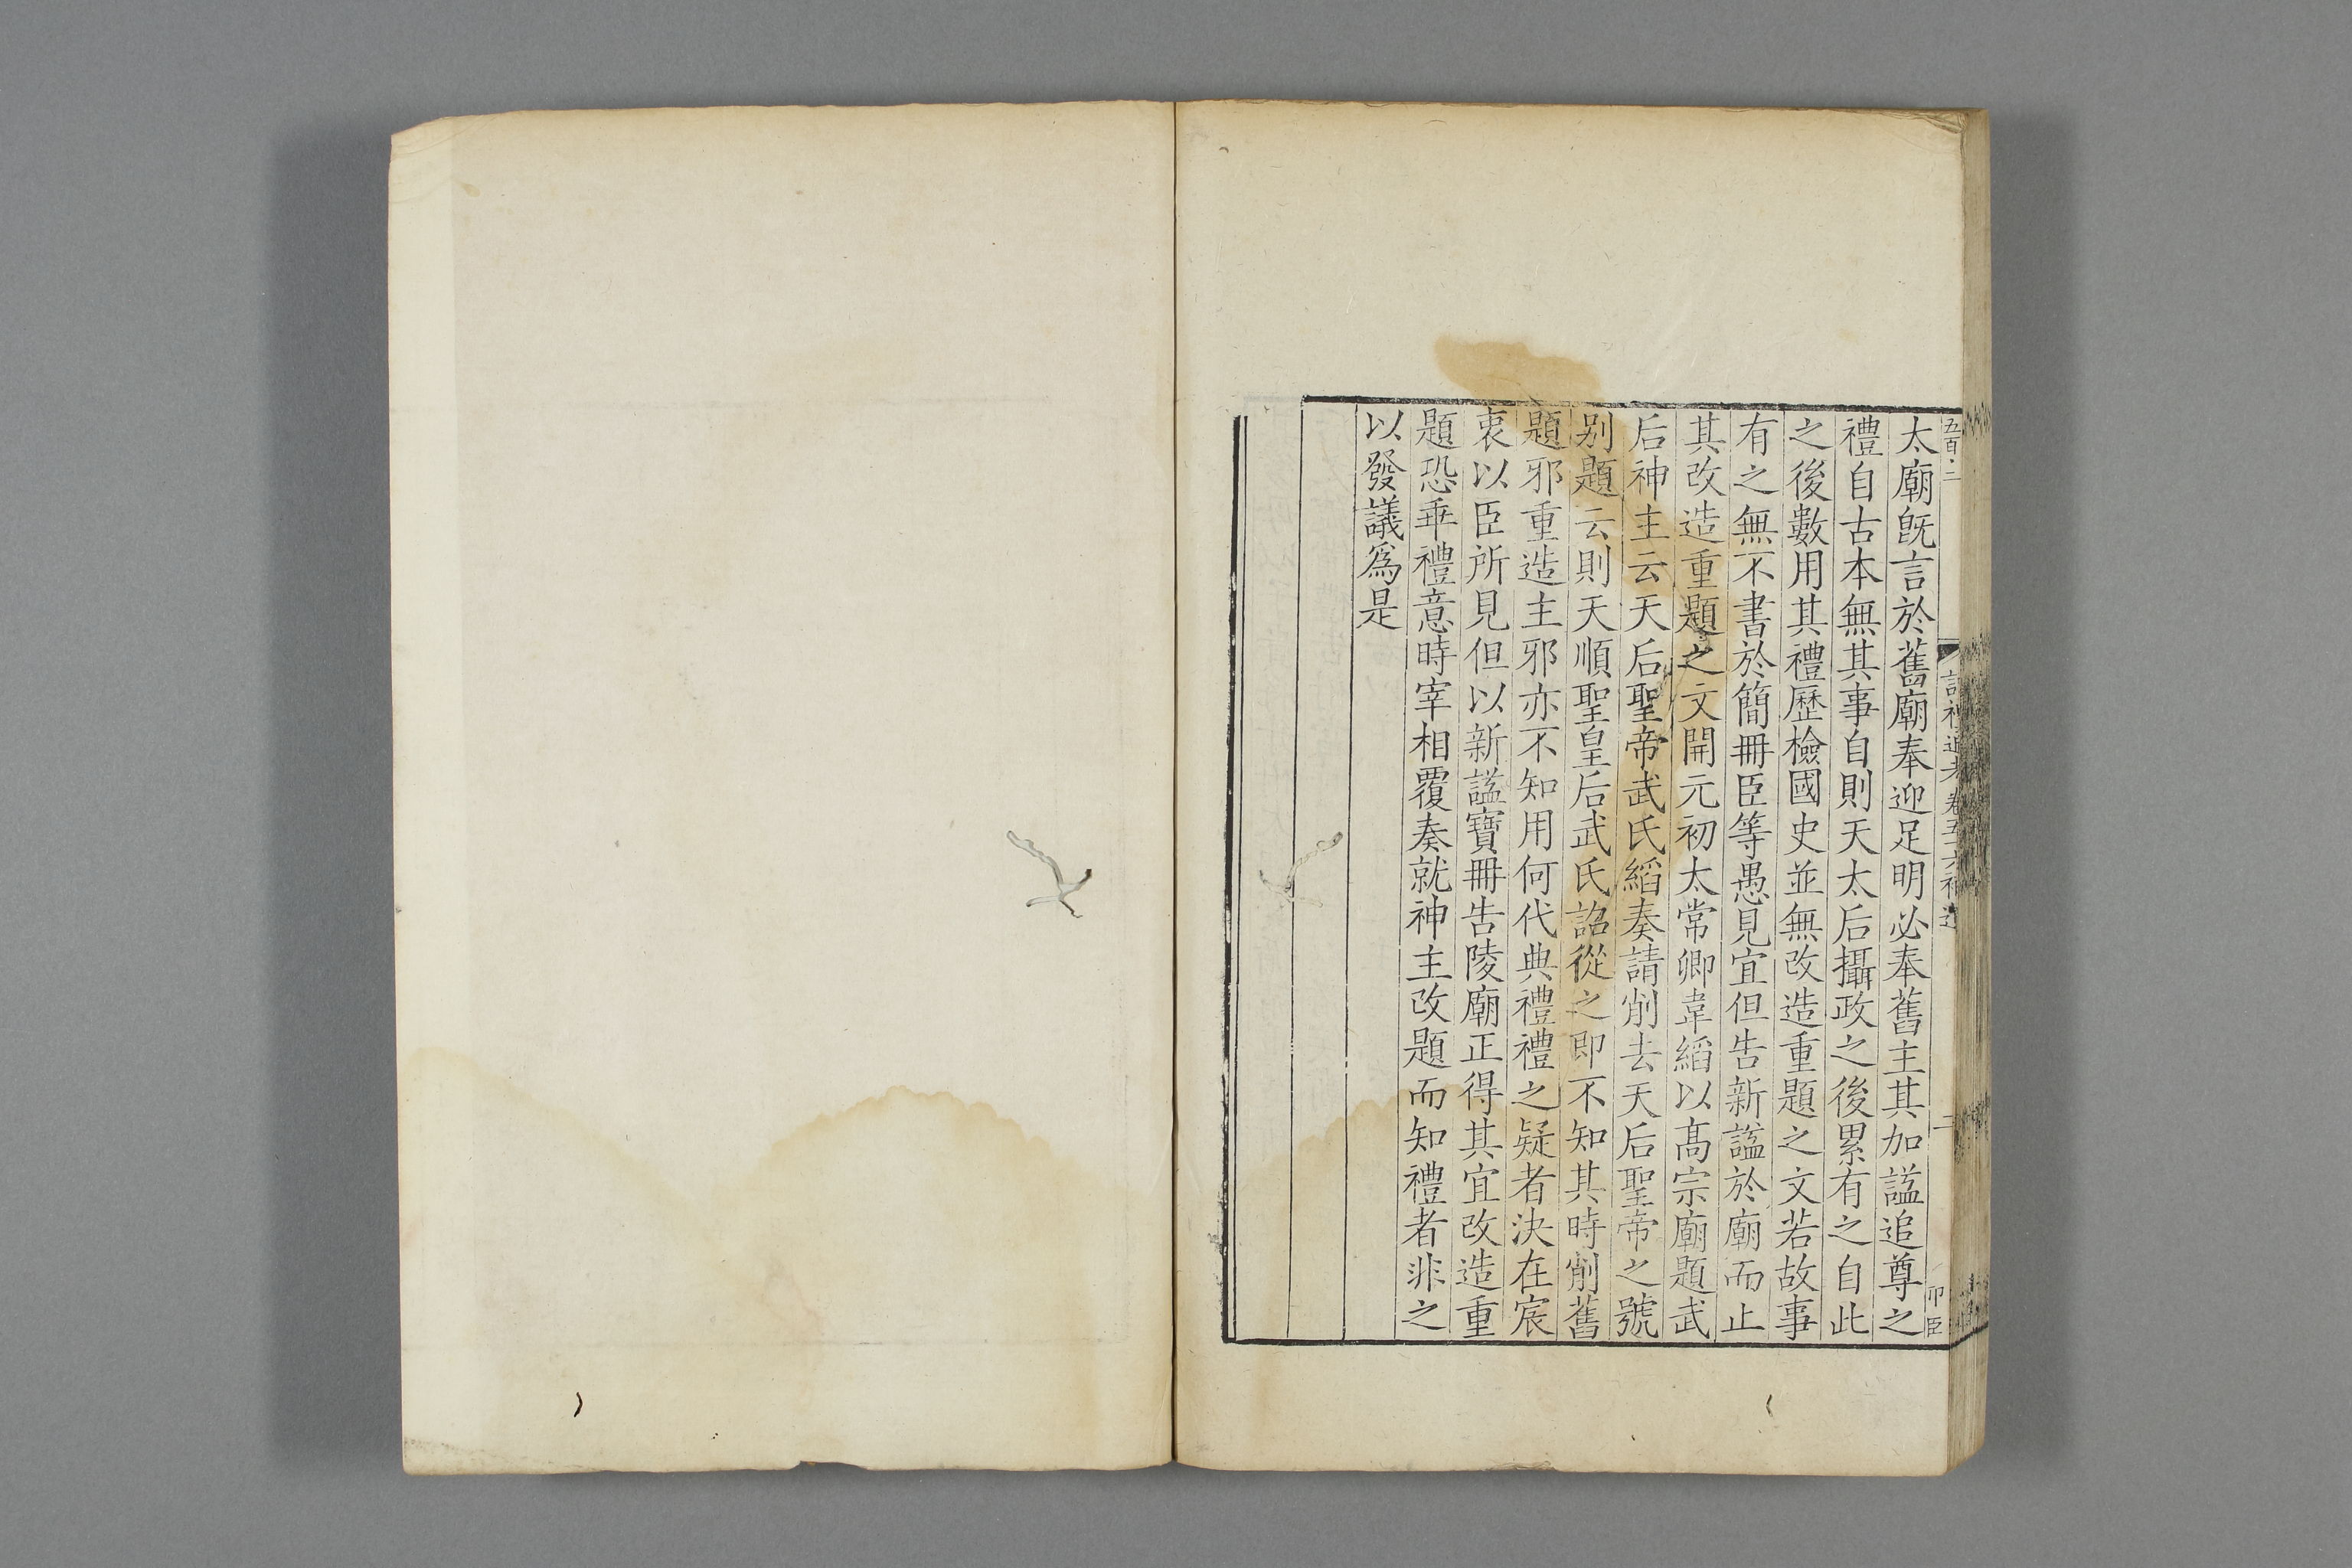 太廟既言於舊廟奉迎足明必奉舊主其加謚追尊之
禮自古本無其事自則天太后攝政之後累有之自此
之後數用其禮歷檢國史並無改造重題之文若故事
有之無不書於簡冊臣等愚見宜但告新謚於廟而止
其改造重題之文開元初太常卿韋縚以髙宗廟題武
后神主云天后聖帝武氏縚奏請削去天后聖帝之號
别題云則天順聖皇后武氏詔從之即不知其時削舊
題邪重造主邪亦不知用何代典禮禮之疑者決在宸
衷以臣所見但以新謚寶冊告陵廟正得其宜改造重
題恐乖禮意時宰相覆奏就神主改題而知禮者非之
以發議爲是